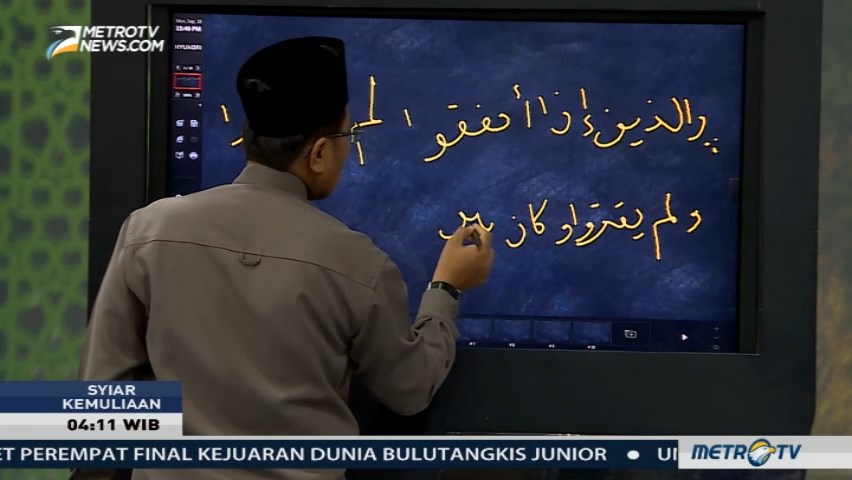 METROTV
NEWS.COM
Mon, Sep, 28
15:40 PM
HYUNDAI
والذين إذا أنفقوا لم
ولم يقتروا و كان بين
SYIAR
KEMULIAAN
04:11 WIB
ET PEREMPAT FINAL KEJUARAN DUNIA BULUTANGKIS JUNIOR • UI
METRO TV